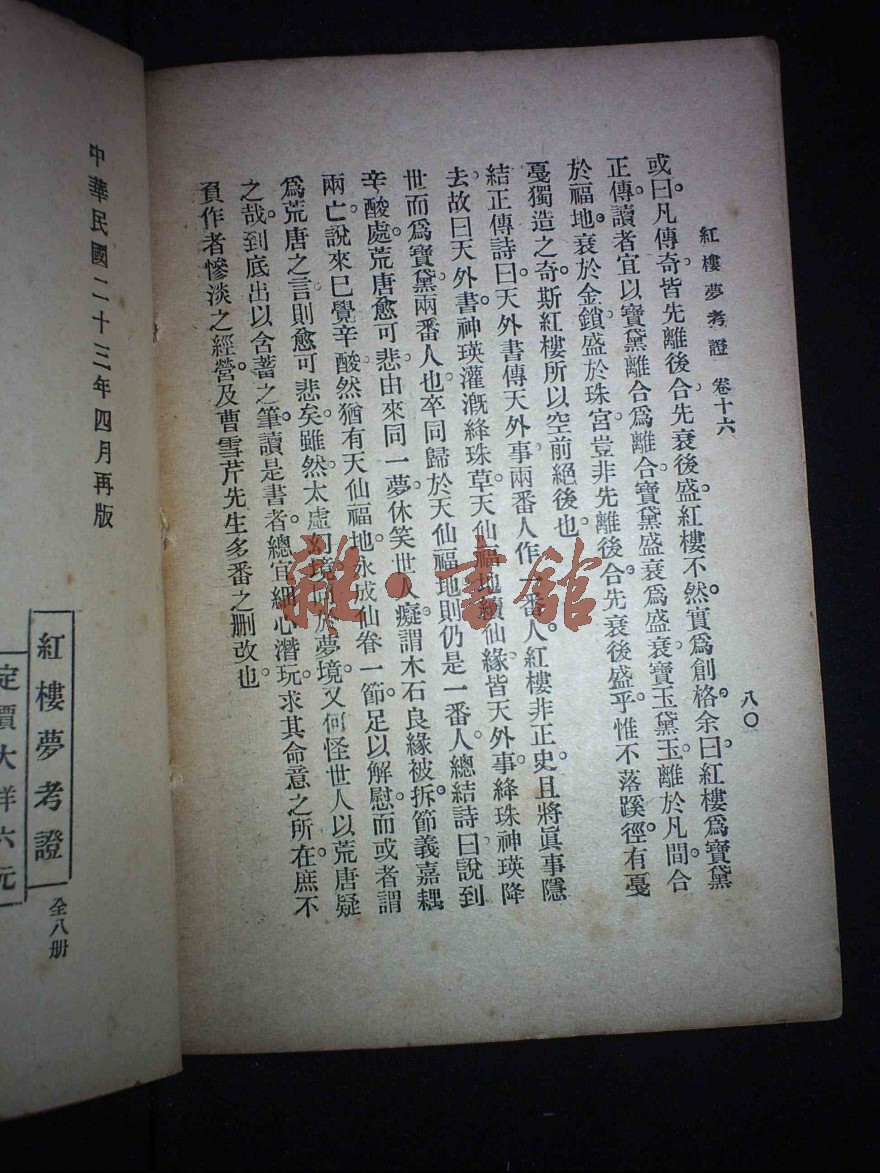 紅樓夢考證 卷十六
八〇
或曰。凡傳奇皆先離後合。先衰後盛。紅樓不然。實爲創格。余曰。紅樓爲寶黛
正傳。讀者宜以寶黛離合爲離合。寶黛盛衰爲盛衰。寶玉黛玉離於凡間。合
於福地。衰於金鎖。盛於珠宮。豈非先離後合。先衰後盛乎。惟不落蹊徑。有戞
戞獨造之奇。斯紅樓所以空前絕後也。
結正傳詩曰。天外書傳天外事。兩番人作一番人。紅樓非正史。且將眞事隱
去。故曰天外書。神瑛灌漑絳珠草。天仙福地續仙緣。皆天外事。絳珠神瑛降
世而爲寶黛。兩番人也。卒同歸於天仙福地。則仍是一番人。總結詩曰。說到
辛酸處。荒唐愈可悲。由來同一夢。休笑世人癡。謂木石良緣被拆。節義嘉耦
兩亡。說來已覺辛酸。然猶有天仙福地永成仙眷一節。足以解慰。而或者謂
爲荒唐之言。則愈可悲矣。雖然。太虛幻境 於夢境。又何怪世人以荒唐疑
之哉。到底出以含蓄之筆。讀是書者。總宜細心潛玩。求其命意之所在。庶不
負作者慘淡之經營。及曹雪芹先生多番之刪改也。
中華民國二十三年四月再版
紅樓夢考證
全八册
定價大洋六元
雜·書館